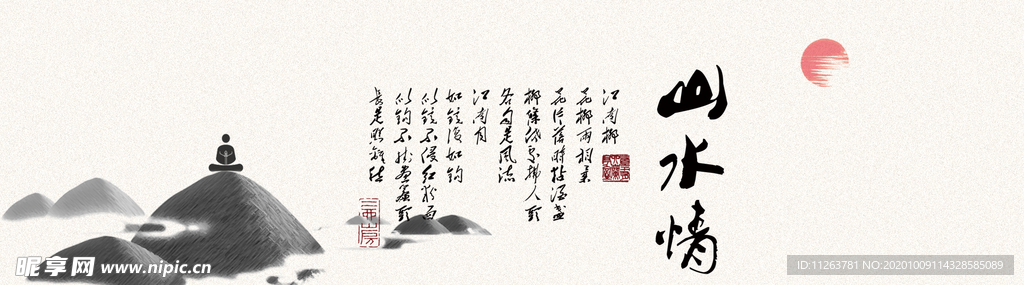 山水情
江南柳
花柳两相柔
花片落時黏酒盞
柳條低处拂人頭
各自是風流
江南月
如鏡復如鈎
似鏡不侵紅粉面
似鈎不挂画簾頭
長是照離愁
昵享网 www.nipic.cn
ID:11263781 NO:20201009114328585089